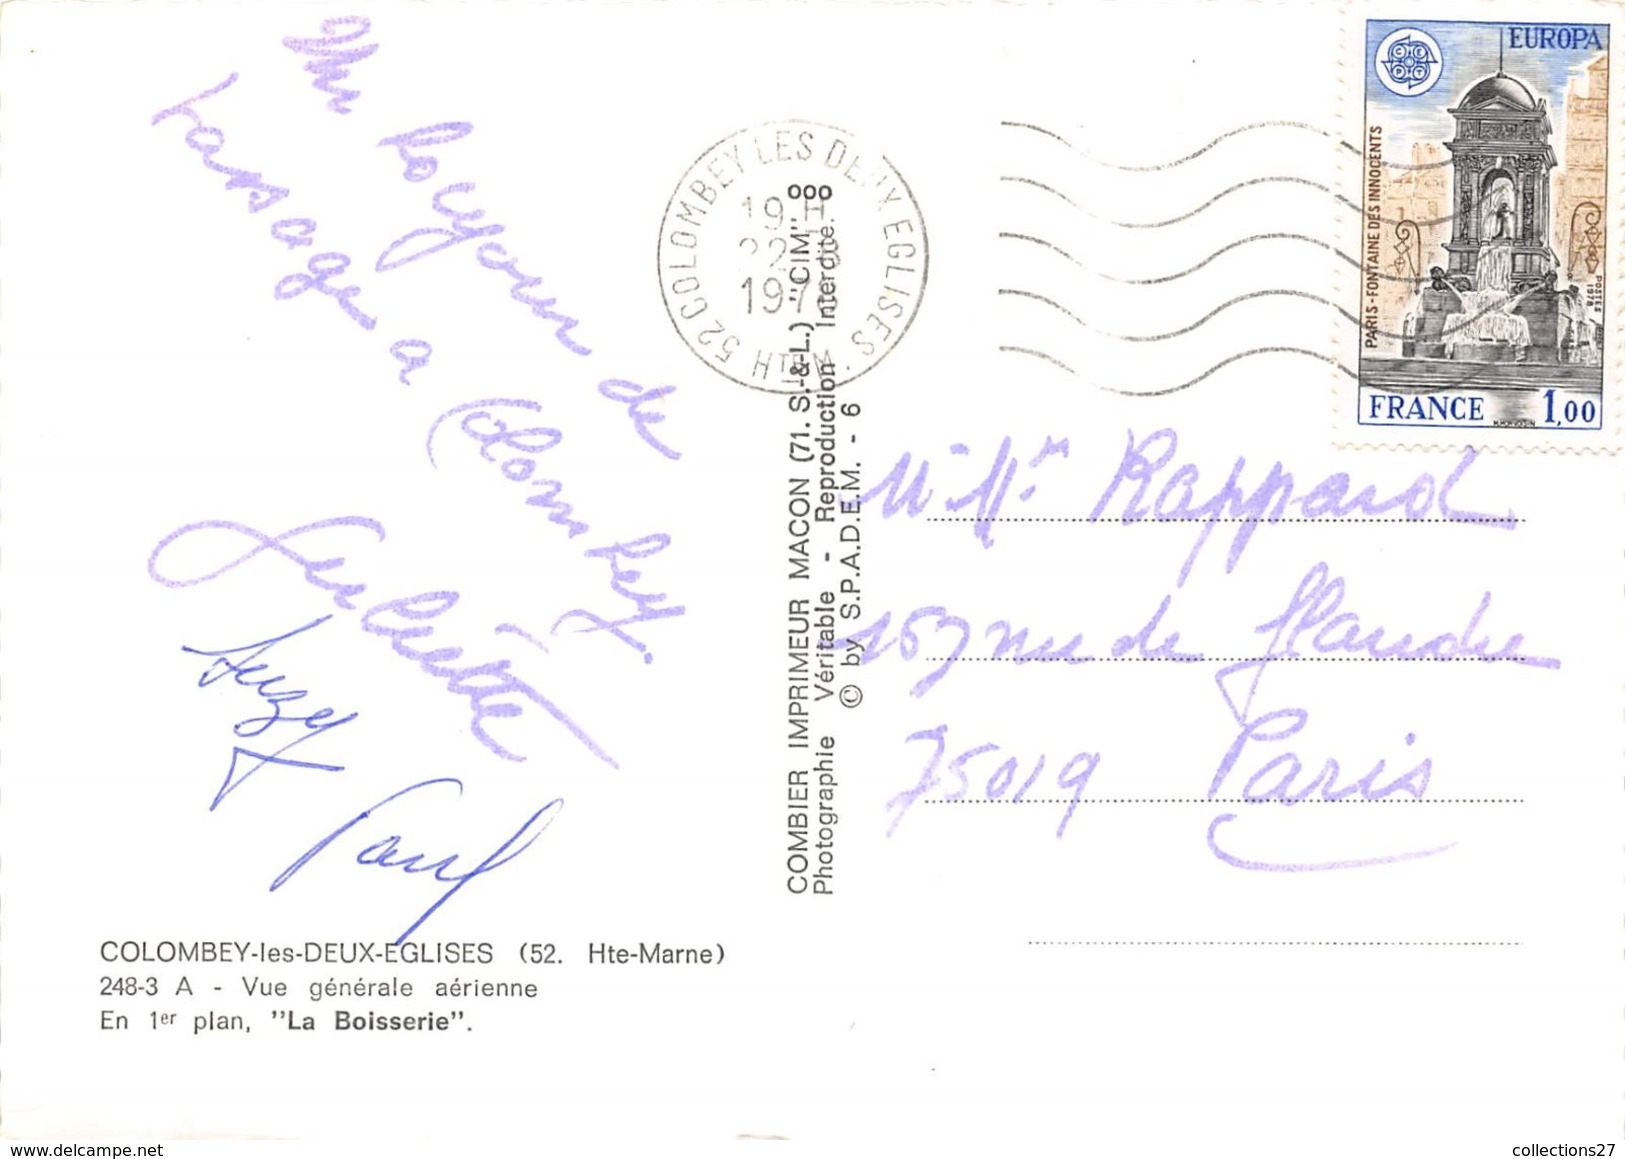 Un bonjour de
passage a
Colombey.
Juliette
Suzy
Paul
COLOMBEY-les-DEUX-EGLISES (52. Hte-Marne)
248-3 A - Vue générale aérienne
En 1er plan, "La Boisserie".
COMBIER IMPRIMEUR MACON (71. S.-&-L.) "CIM"
Photographie Véritable - Reproduction Interdite.
© by S.P.A.D.E.M. - 6
52 COLOMBEY LES DEUX EGLISES
HTE M
19 H
EUROPA
CEPT
PARIS - FONTAINE DES INNOCENTS
POSTES 1978
FRANCE 1,00
Mr Mme Rappard
157 rue de Flandre
75019 Paris
collections27